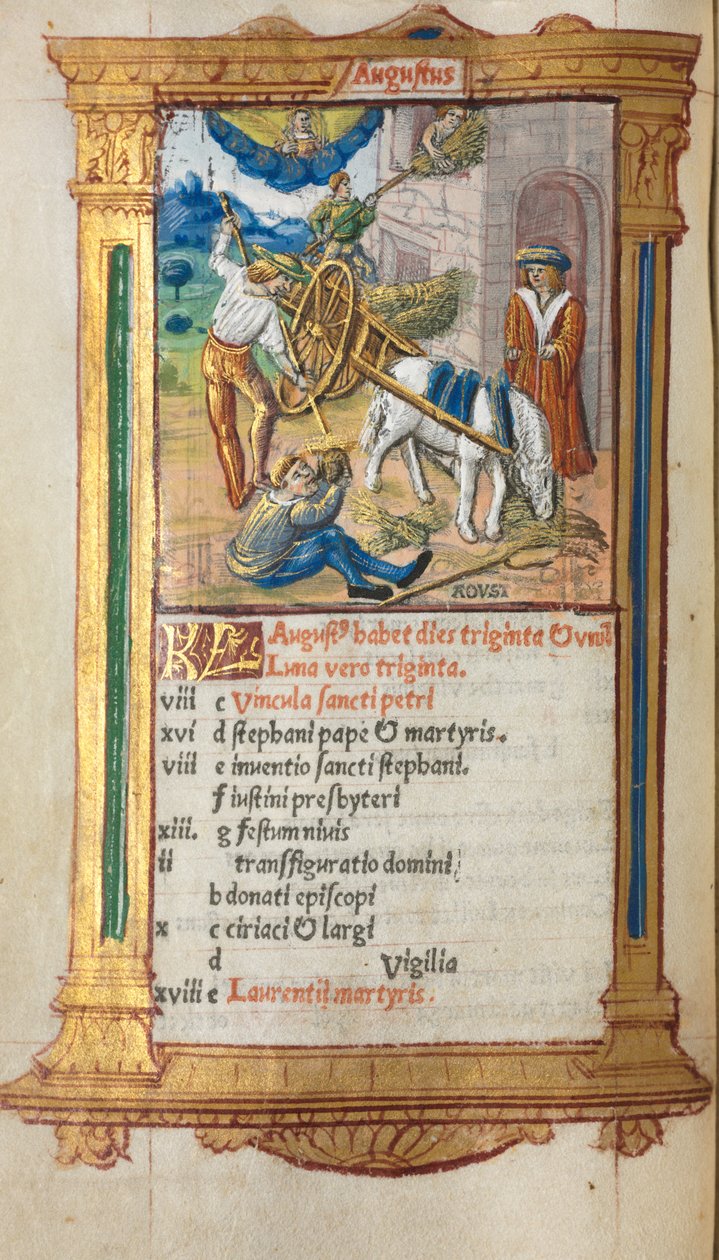 Auguſtus
AOVST
KL Auguſtꝰ habet dies triginta & vnū
Luna vero triginta.
viii c Vincula ſancti petri
xvi d ſtephani pape & martyris.
viii e inuentio ſancti ſtephani.
f iuſtini presbyteri
xiii. g feſtum niuis
ii tranſfiguratio domini
b donati epiſcopi
x c ciriaci & largi
d Vigilia
xviii e Laurentij martyris.